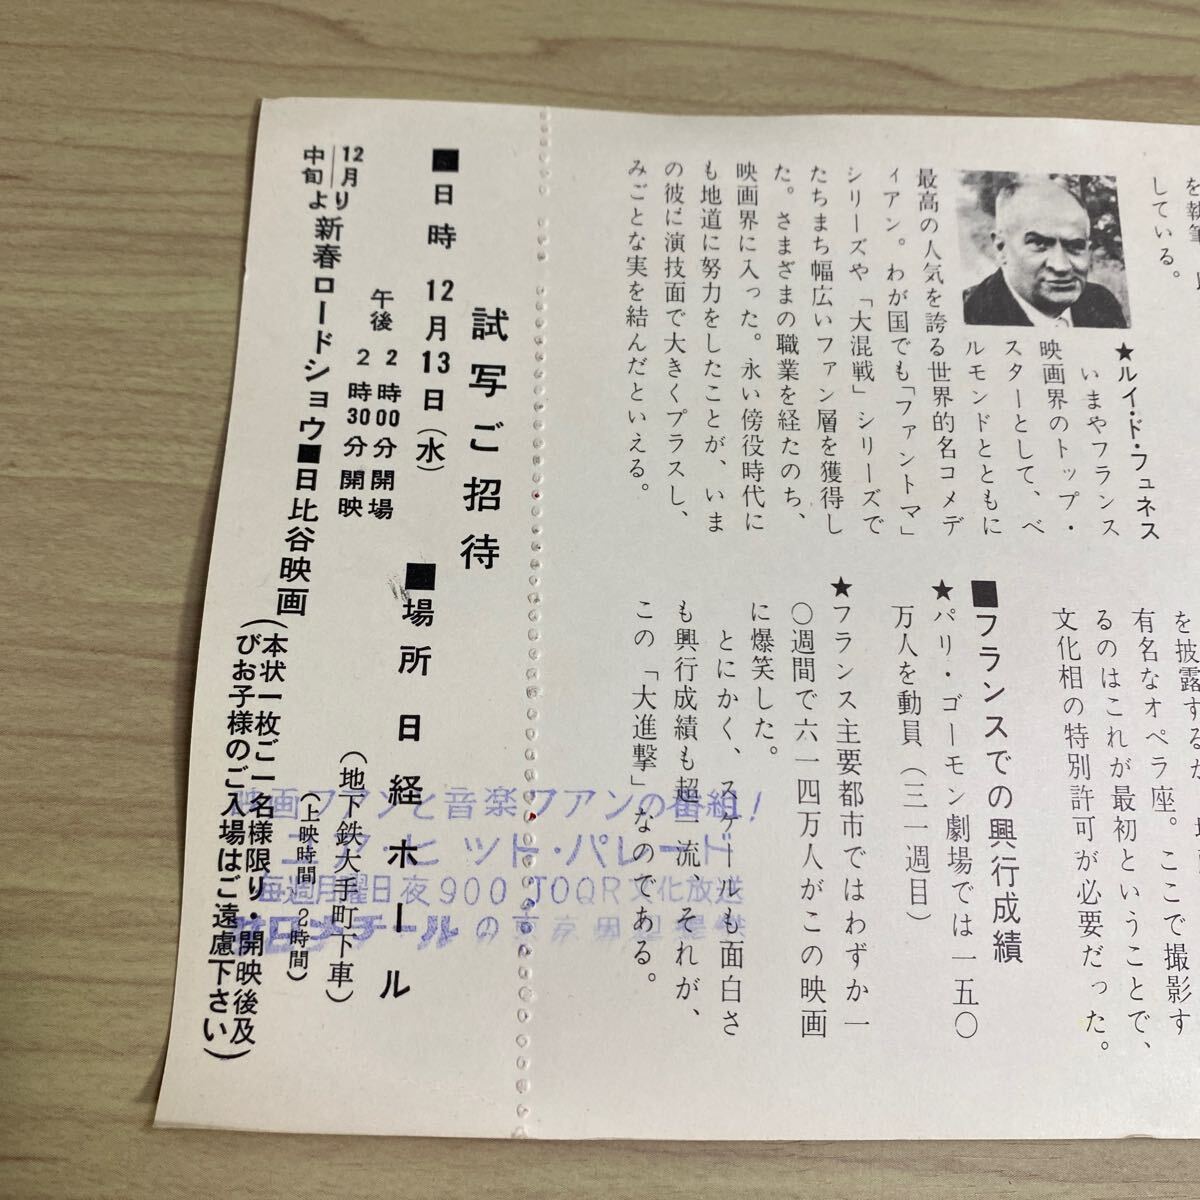 を執筆
している。
★ルイ・ド・フュネス
いまやフランス
映画界のトップ・
スターとして、ベ
ルモンドとともに
最高の人気を誇る世界的名コメデ
ィアン。わが国でも「ファントマ」
シリーズや「大混戦」シリーズで
たちまち幅広いファン層を獲得し
た。さまざまの職業を経たのち、
映画界に入った。永い傍役時代に
も地道に努力をしたことが、いま
の彼に演技面で大きくプラスし、
みごとな実を結んだといえる。
を披露するが
有名なオペラ座。ここで撮影す
るのはこれが最初ということで、
文化相の特別許可が必要だった。
■フランスでの興行成績
★パリ・ゴーモン劇場では一五〇
万人を動員(三一週目)
★フランス主要都市ではわずか一
〇週間で六一四万人がこの映画
に爆笑した。
とにかく、スケールも面白さ
も興行成績も超一流、それが、
この「大進撃」なのである。
試写ご招待
■日時 12月13日(水)
午後 2時00分開場
2時30分開映
■場所 日経ホール
(地下鉄大手町下車)
(上映時間 2時間)
12月中旬より新春ロードショウ■日比谷映画
(本状一枚ご一名様限り・開映後及
びお子様のご入場はご遠慮下さい)
映画ファンと音楽ファンの番組!
ユア・ヒット・パレード
毎週月曜日夜900 JOQR文化放送
サロメチールの東京田辺提供